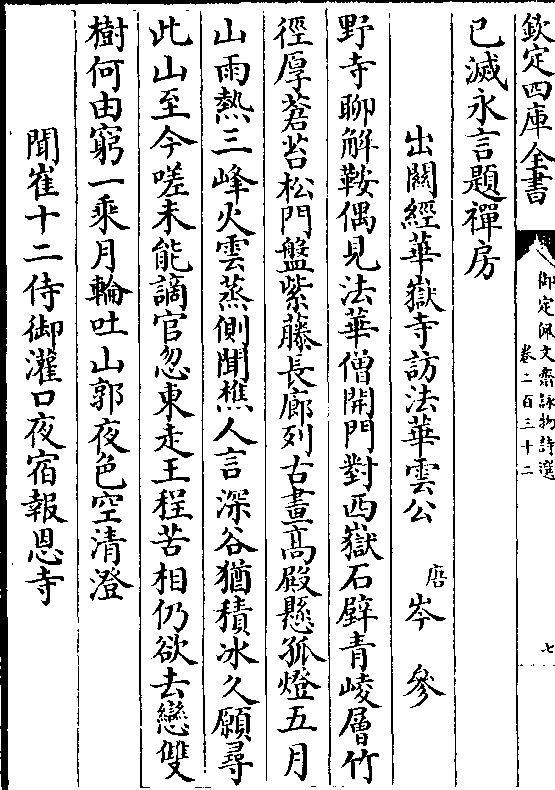 欽定四庫全書
御定佩文齋詠物詩選
卷二百三十二
七
已滅永言題禪房
出關經華嶽寺訪法華雲公
唐
岑參
野寺聊解鞍偶見法華僧開門對西嶽石壁青崚層竹
徑厚蒼苔松門盤紫藤長廊列古畫高殿懸孤燈五月
山雨熱三峰火雲蒸側聞樵人言深谷猶積冰久願尋
此山至今嗟未能謫官忽東走王程苦相仍欲去戀雙
樹何由窮一乘月輪吐山郭夜色空清澄
聞崔十二侍御灌口夜宿報恩寺